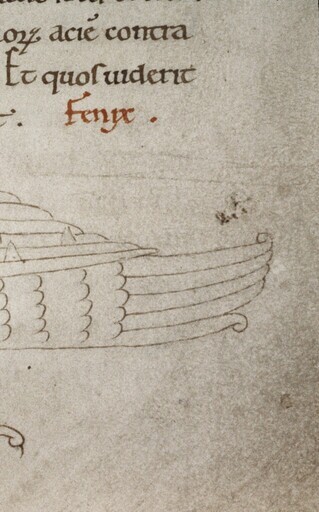 orꝝ aciē contra
Et quos uiderit
t. Fenix.